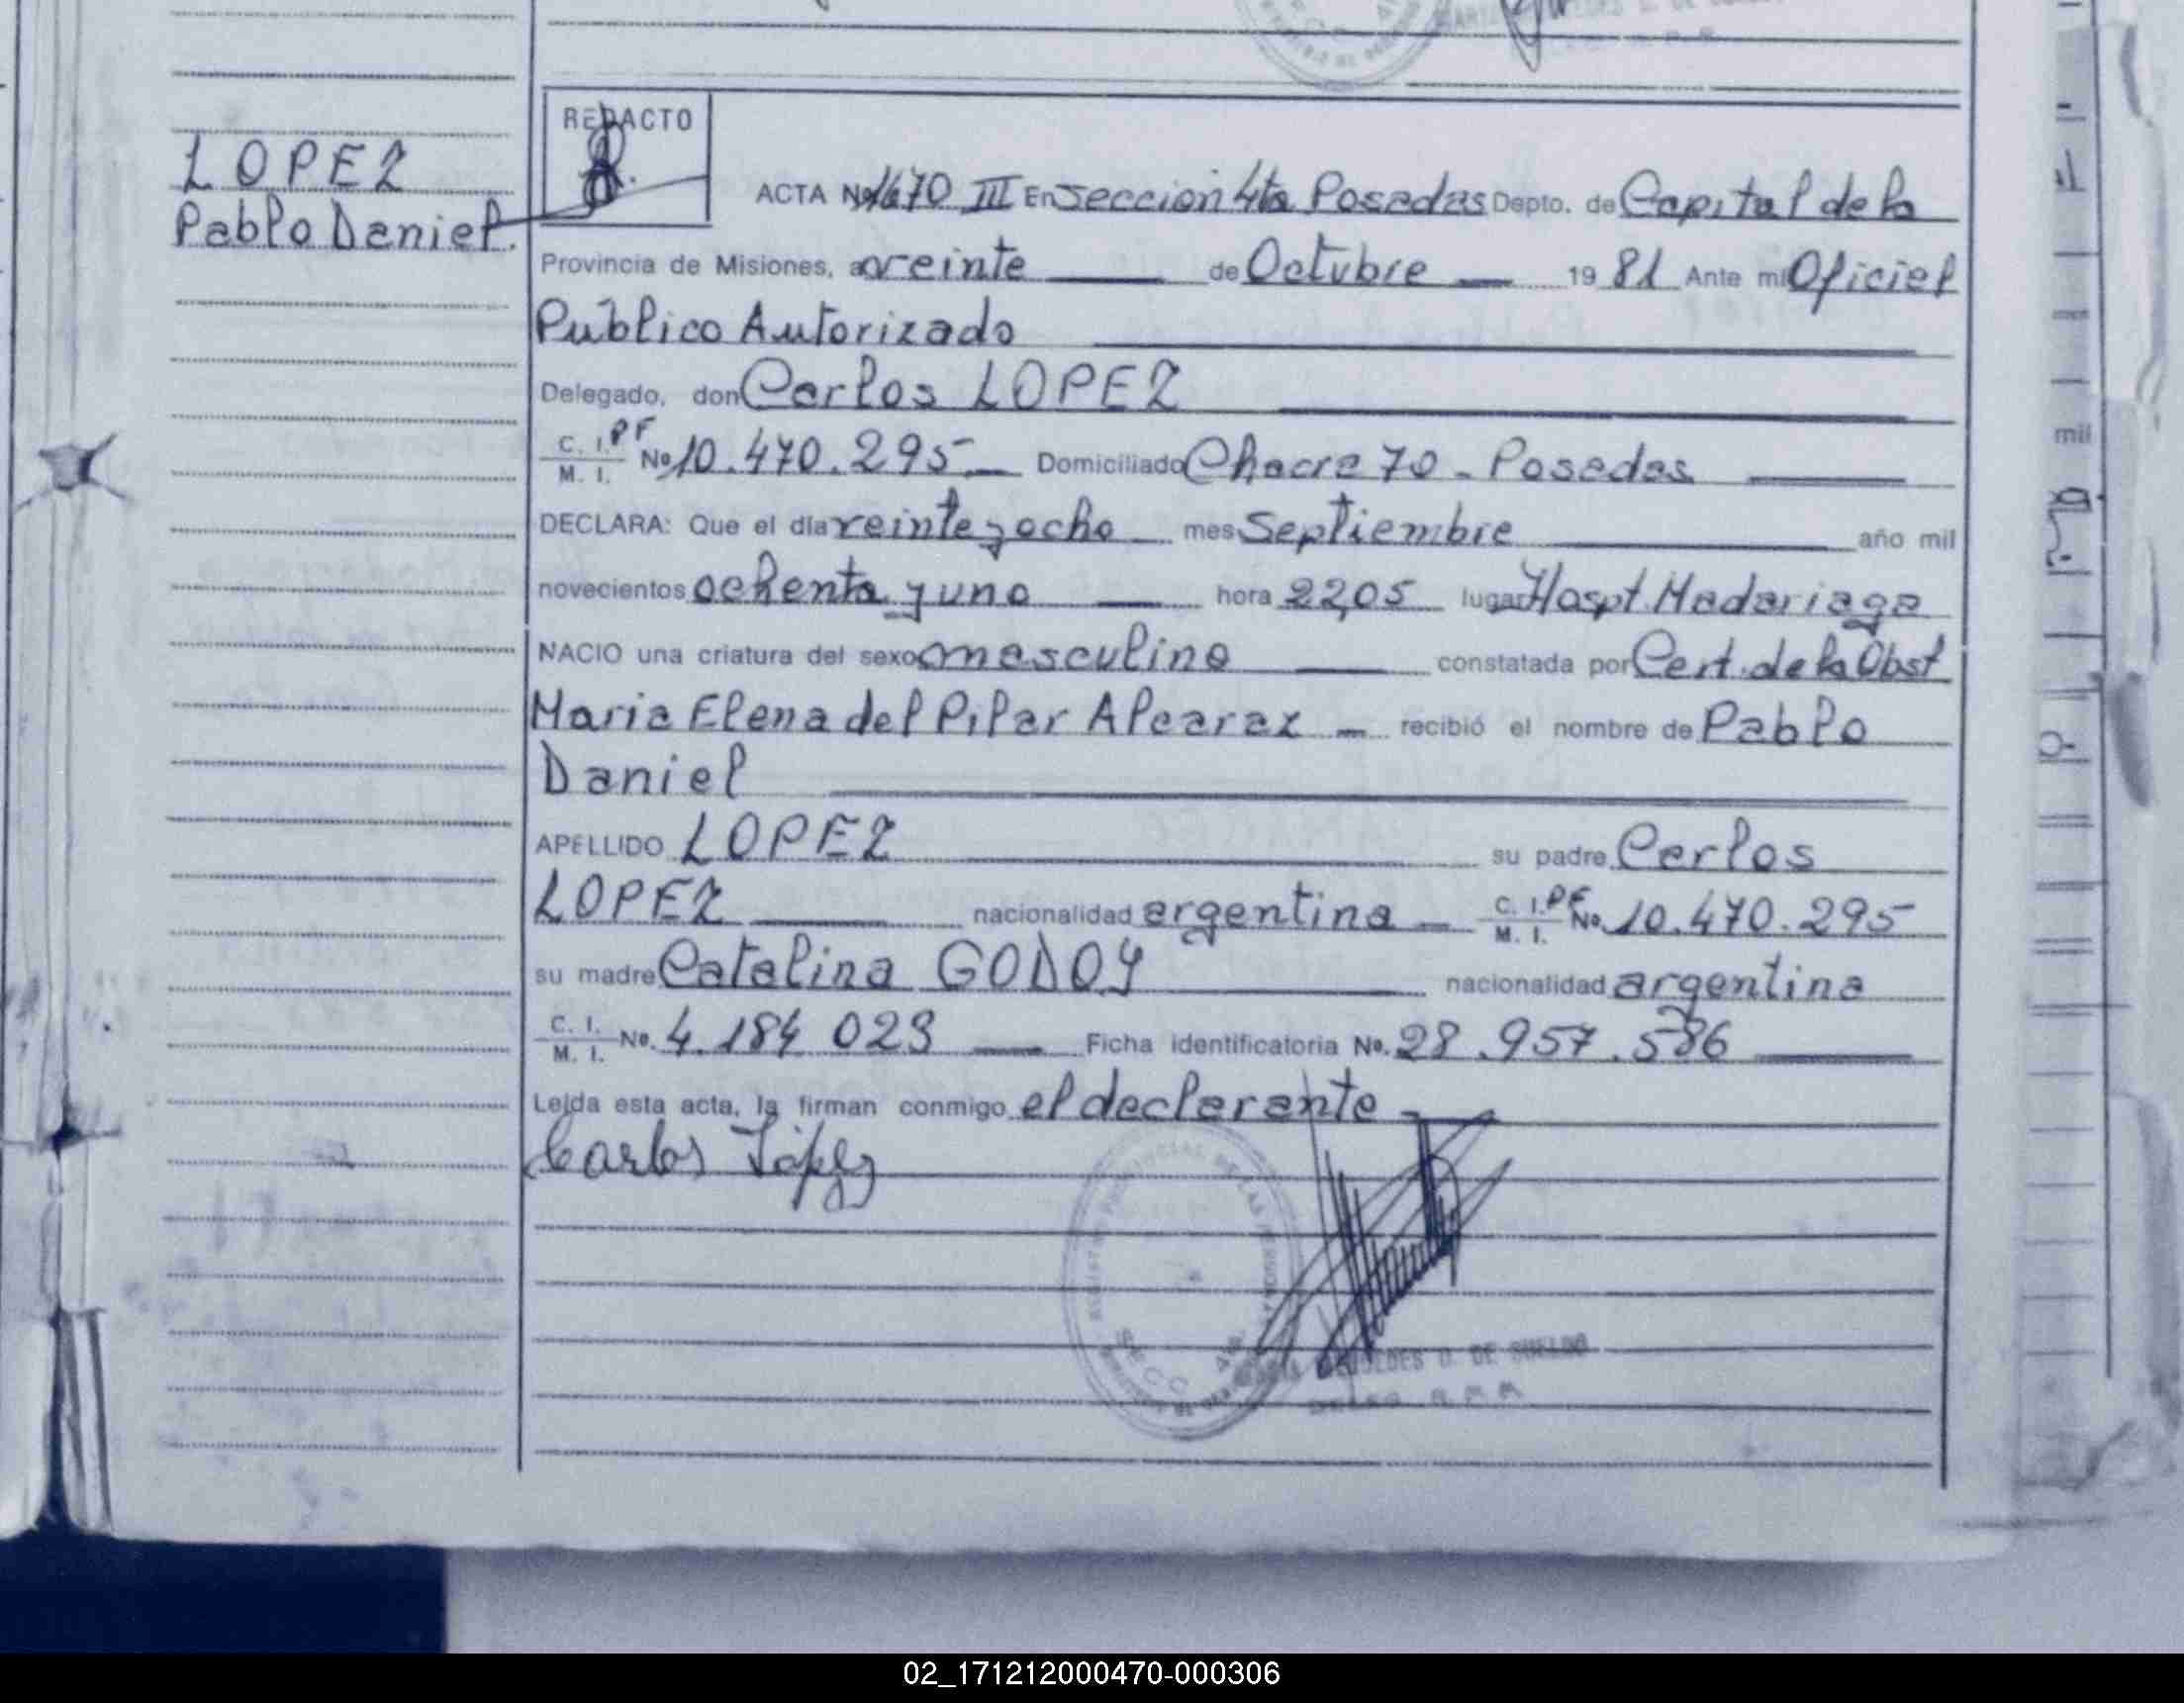 REDACTO
LOPEZ
Pablo Daniel.
ACTA Nº 1670 III En Seccion 4ta Posadas Depto. de Capital de la
Provincia de Misiones, a veinte de Octubre 19 81 Ante mi Oficial
Publico Autorizado
Delegado, don Carlos LOPEZ
C. I. PF
M. I. Nº 10.470.295 Domiciliado Chacra 70 - Posadas
DECLARA: Que el día veinte y ocho mes Septiembre año mil
novecientos ochenta y uno hora 22,05 lugar Hospt. Madariaga
NACIO una criatura del sexo masculino constatada por Cert. de la Obst
Maria Elena del Pilar Alcaraz recibió el nombre de Pablo
Daniel
APELLIDO LOPEZ su padre Carlos
LOPEZ nacionalidad argentina C. I. PF
M. I. No. 10.470.295
su madre Catalina GODOY nacionalidad argentina
C. I.
M. I. Nº. 4.184 023 Ficha identificatoria Nº. 28.957.586
Leída esta acta, la firman conmigo el declarante
Carlos López
DE SUELDO
mil
02_171212000470-000306